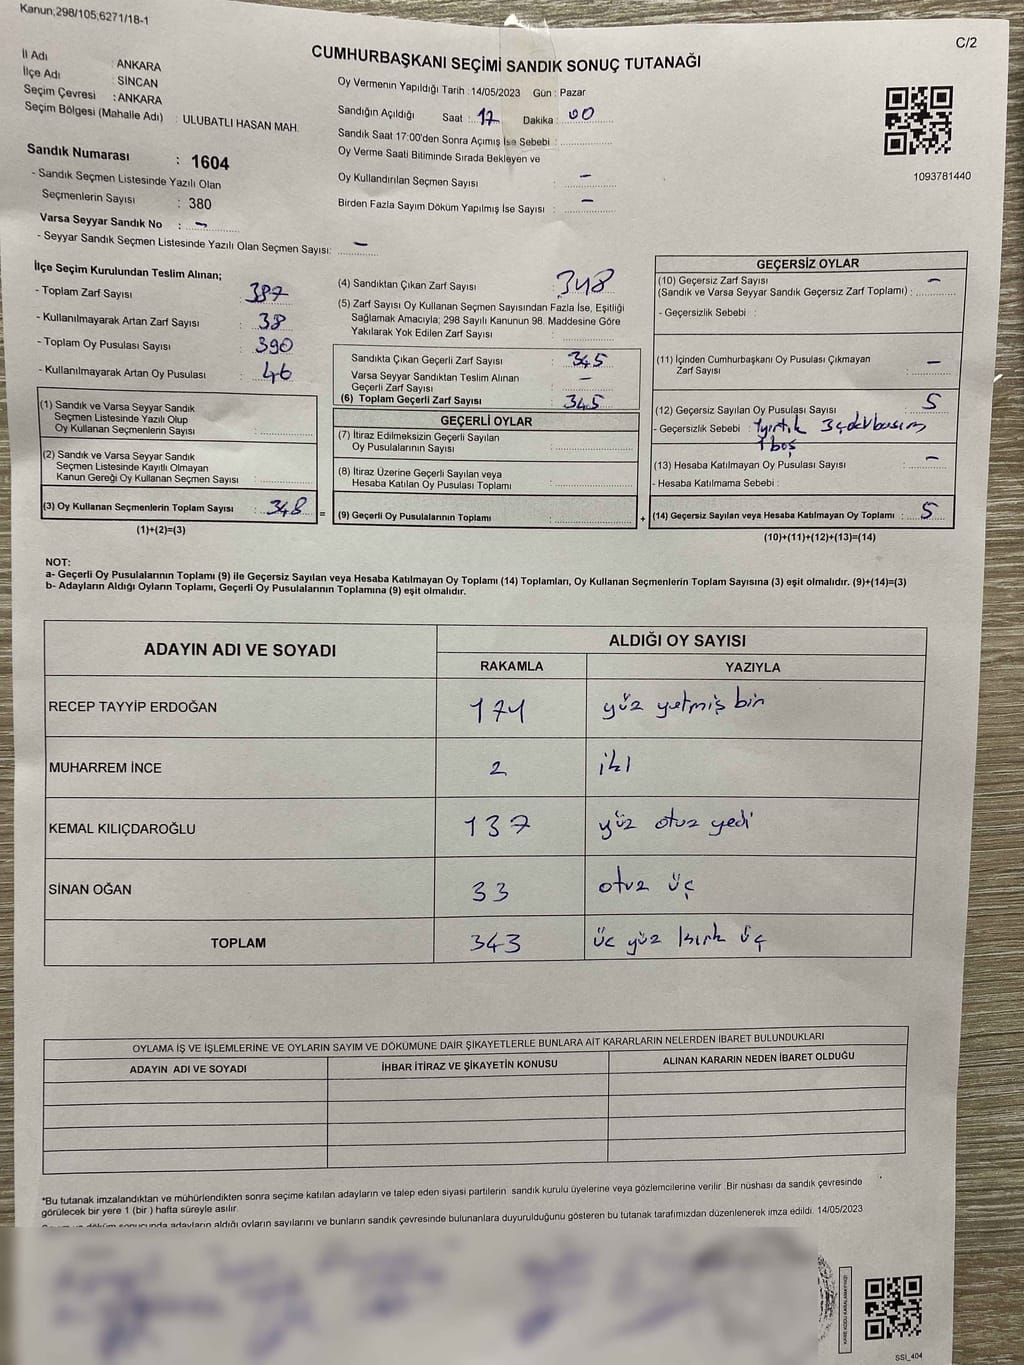 Kanun;298/105,6271/18-1
C/2
CUMHURBAŞKANI SEÇİMİ SANDIK SONUÇ TUTANAĞI
İl Adı : ANKARA
İlçe Adı : SİNCAN
Seçim Çevresi : ANKARA
Seçim Bölgesi (Mahalle Adı) : ULUBATLI HASAN MAH.
Sandık Numarası : 1604
- Sandık Seçmen Listesinde Yazılı Olan
Seçmenlerin Sayısı : 380
Varsa Seyyar Sandık No : -
- Seyyar Sandık Seçmen Listesinde Yazılı Olan Seçmen Sayısı: -
Oy Vermenin Yapıldığı Tarih : 14/05/2023 Gün : Pazar
Sandığın Açıldığı Saat : 17 Dakika : 00
Sandık Saat 17:00'den Sonra Açımış İse Sebebi :
Oy Verme Saati Bitiminde Sırada Bekleyen ve
Oy Kullandırılan Seçmen Sayısı : -
Birden Fazla Sayım Döküm Yapılmış İse Sayısı : -
1093781440
İlçe Seçim Kurulundan Teslim Alınan;
- Toplam Zarf Sayısı : 387
- Kullanılmayarak Artan Zarf Sayısı : 38
- Toplam Oy Pusulası Sayısı : 390
- Kullanılmayarak Artan Oy Pusulası : 46
(1) Sandık ve Varsa Seyyar Sandık
Seçmen Listesinde Yazılı Olup
Oy Kullanan Seçmenlerin Sayısı :
(2) Sandık ve Varsa Seyyar Sandık
Seçmen Listesinde Kayıtlı Olmayan
Kanun Gereği Oy Kullanan Seçmen Sayısı :
(3) Oy Kullanan Seçmenlerin Toplam Sayısı : 348
(1)+(2)=(3)
(4) Sandıktan Çıkan Zarf Sayısı : 348
(5) Zarf Sayısı Oy Kullanan Seçmen Sayısından Fazla İse, Eşitliği
Sağlamak Amacıyla; 298 Sayılı Kanunun 98. Maddesine Göre
Yakılarak Yok Edilen Zarf Sayısı :
Sandıkta Çıkan Geçerli Zarf Sayısı : 345
Varsa Seyyar Sandıktan Teslim Alınan
Geçerli Zarf Sayısı : -
(6) Toplam Geçerli Zarf Sayısı : 345
GEÇERLİ OYLAR
(7) İtiraz Edilmeksizin Geçerli Sayılan
Oy Pusulalarının Sayısı :
(8) İtiraz Üzerine Geçerli Sayılan veya
Hesaba Katılan Oy Pusulası Toplamı :
= (9) Geçerli Oy Pusulalarının Toplamı :
GEÇERSİZ OYLAR
(10) Geçersiz Zarf Sayısı
(Sandık ve Varsa Seyyar Sandık Geçersiz Zarf Toplamı) : -
- Geçersizlik Sebebi :
(11) İçinden Cumhurbaşkanı Oy Pusulası Çıkmayan
Zarf Sayısı : -
(12) Geçersiz Sayılan Oy Pusulası Sayısı : 5
- Geçersizlik Sebebi : 1yırtık 3çok
1 boş
(13) Hesaba Katılmayan Oy Pusulası Sayısı : -
- Hesaba Katılmama Sebebi :
+ (14) Geçersiz Sayılan veya Hesaba Katılmayan Oy Toplamı : 5
(10)+(11)+(12)+(13)=(14)
NOT:
a- Geçerli Oy Pusulalarının Toplamı (9) ile Geçersiz Sayılan veya Hesaba Katılmayan Oy Toplamı (14) Toplamları, Oy Kullanan Seçmenlerin Toplam Sayısına (3) eşit olmalıdır. (9)+(14)=(3)
b- Adayların Aldığı Oyların Toplamı, Geçerli Oy Pusulalarının Toplamına (9) eşit olmalıdır.
ADAYIN ADI VE SOYADI
ALDIĞI OY SAYISI
RAKAMLA YAZIYLA
RECEP TAYYİP ERDOĞAN 171 yüz yetmiş bir
MUHARREM İNCE 2 iki
KEMAL KILIÇDAROĞLU 137 yüz otuz yedi
SİNAN OĞAN 33 otuz üç
TOPLAM 343 üç yüz kırk üç
OYLAMA İŞ VE İŞLEMLERİNE VE OYLARIN SAYIM VE DÖKÜMÜNE DAİR ŞİKAYETLERLE BUNLARA AİT KARARLARIN NELERDEN İBARET BULUNDUKLARI
ADAYIN ADI VE SOYADI İHBAR İTİRAZ VE ŞİKAYETİN KONUSU ALINAN KARARIN NEDEN İBARET OLDUĞU
*Bu tutanak imzalandıktan ve mühürlendikten sonra seçime katılan adayların ve talep eden siyasi partilerin sandık kurulu üyelerine veya gözlemcilerine verilir. Bir nüshası da sandık çevresinde
görülecek bir yere 1 (bir) hafta süreyle asılır.
döküm sonucunda adayların aldığı oyların sayılarını ve bunların sandık çevresinde bulunanlara duyurulduğunu gösteren bu tutanak tarafımızdan düzenlenerek imza edildi. 14/05/2023
KARE KODU KARALAMAYINIZ!
SSİ_404